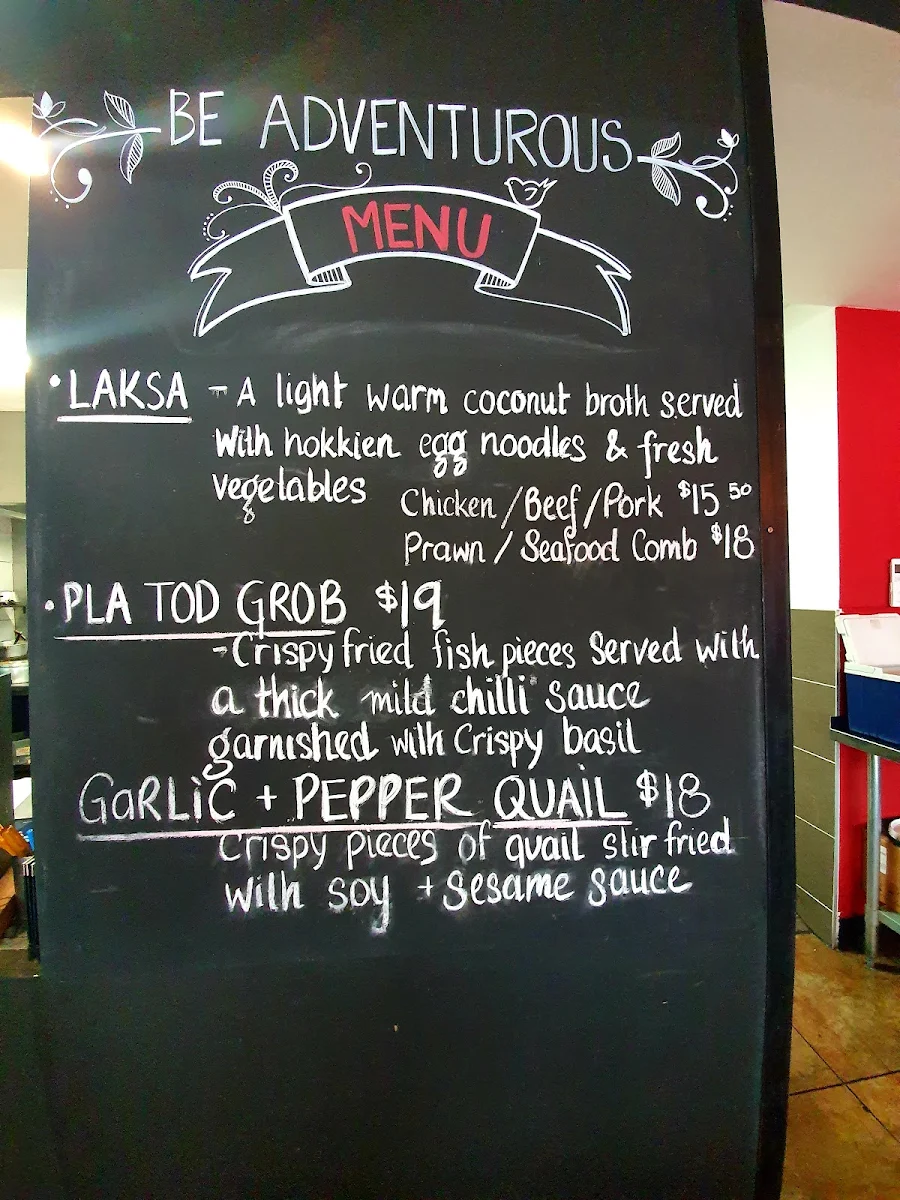 BE ADVENTUROUS
MENU
• LAKSA - A light warm coconut broth served
with hokkien egg noodles & fresh
vegetables
Chicken/Beef/Pork $15 50
Prawn / Seafood Comb $18
• PLA TOD GROB $19
- Crispy fried fish pieces served with
a thick mild chilli sauce
garnished with crispy basil
GaRLiC + PEPPER QUAIL $18
Crispy pieces of quail stir fried
with soy + sesame sauce